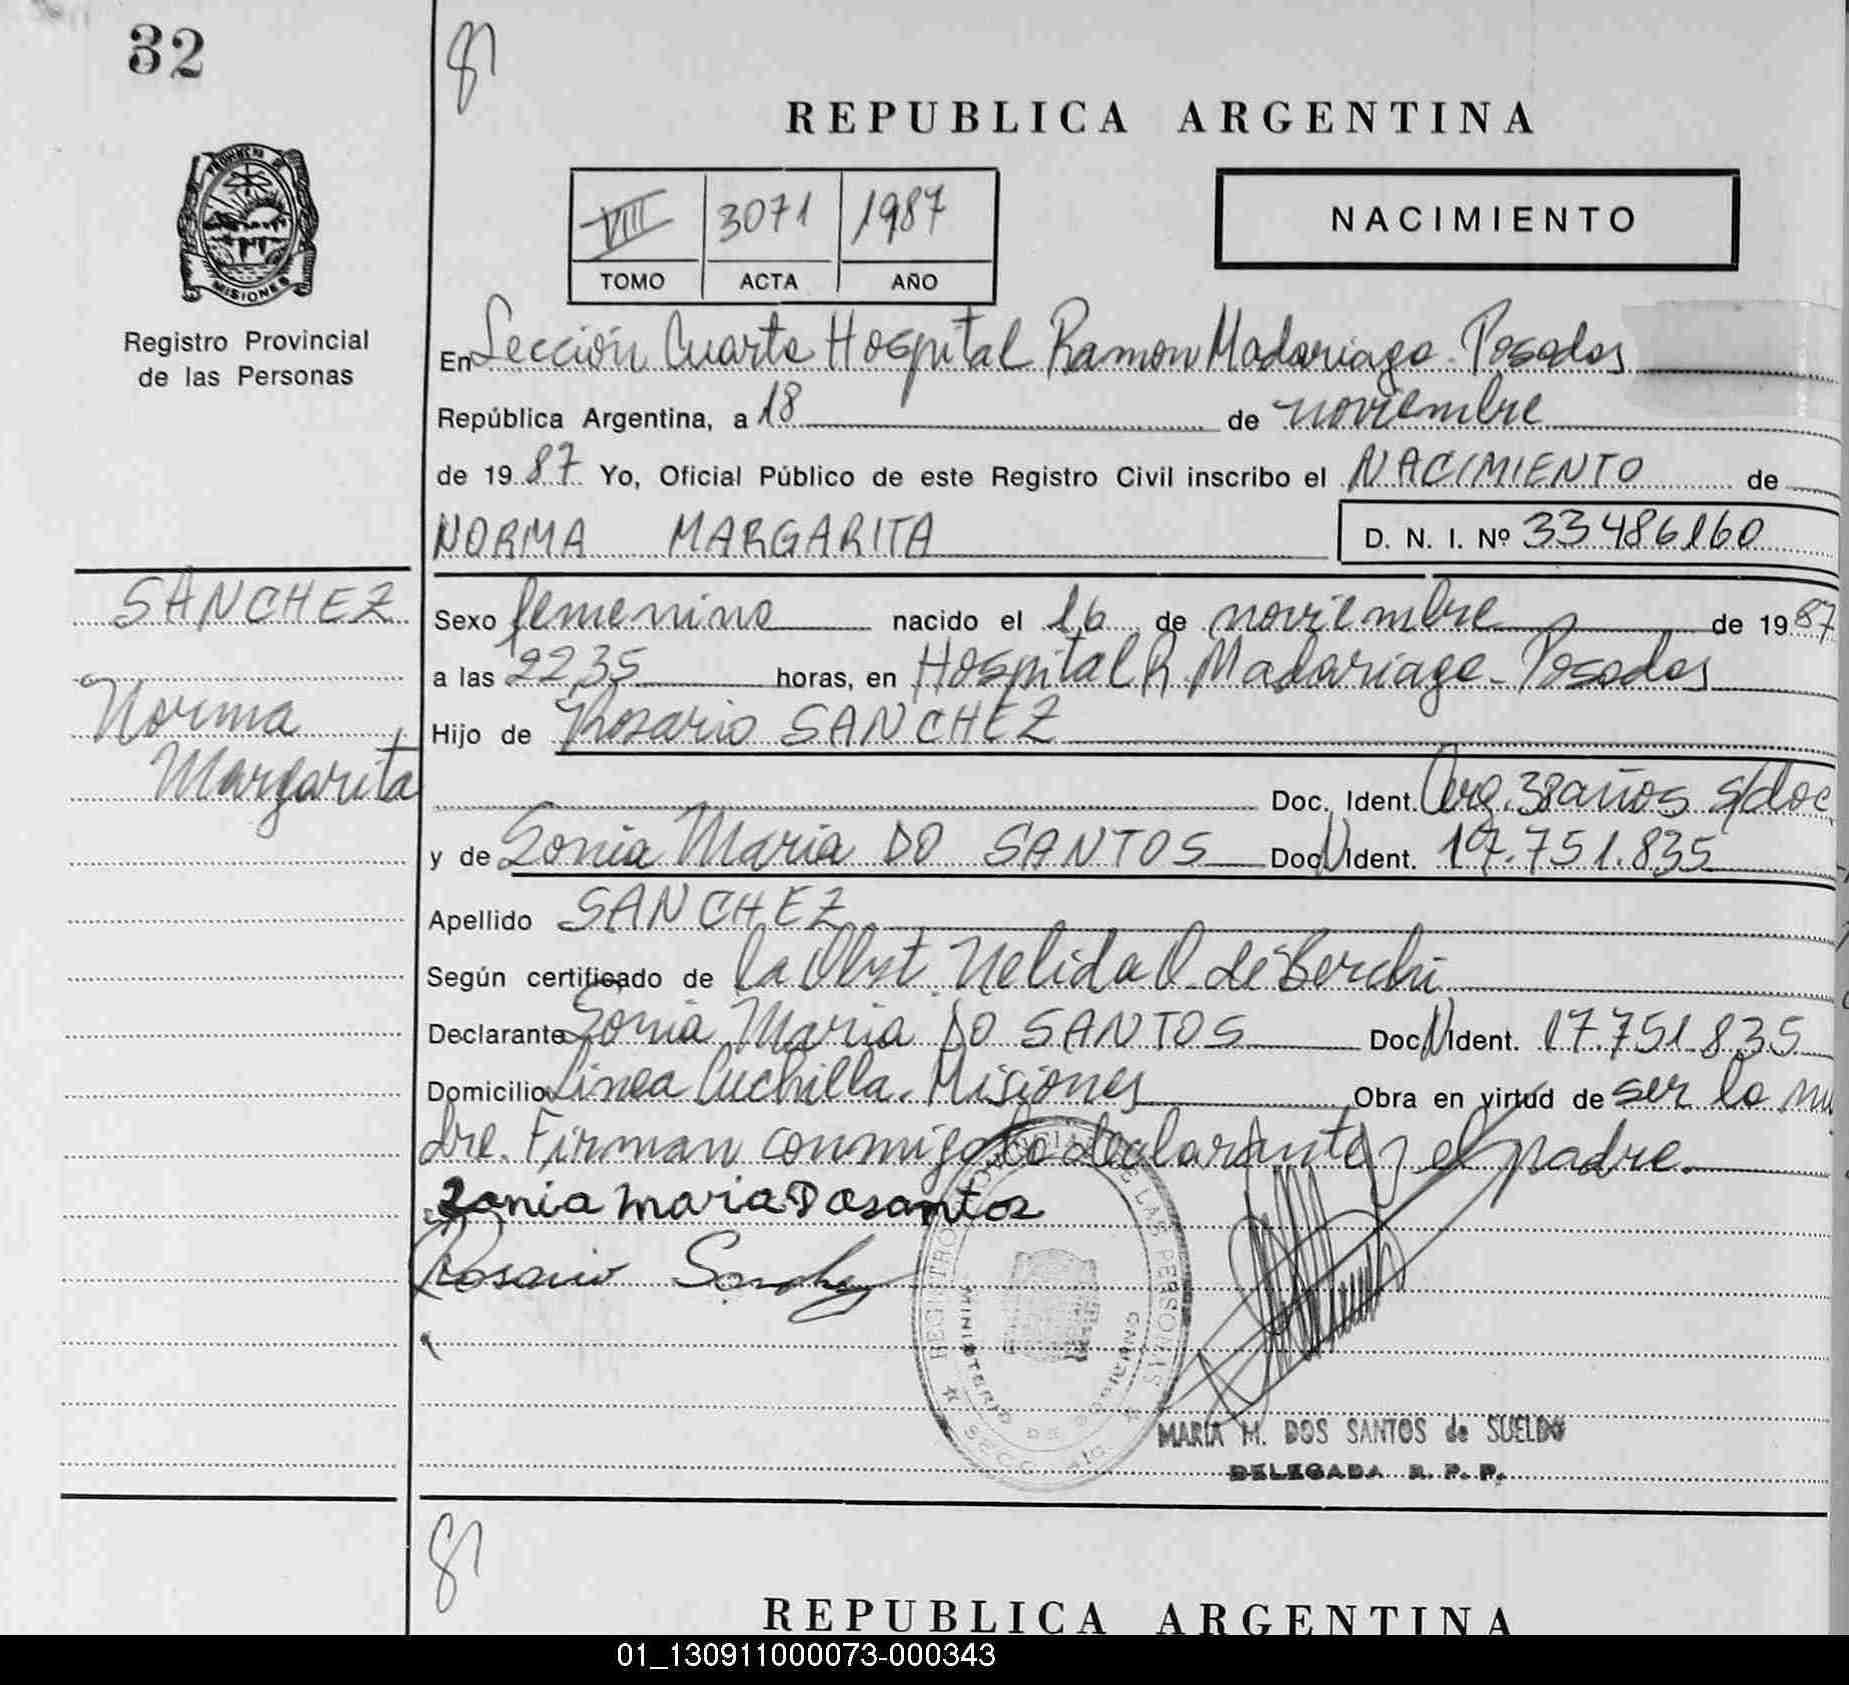 32
87
REPUBLICA ARGENTINA
VIII 3071 1987
TOMO ACTA AÑO
NACIMIENTO
PROVINCIA DE
MISIONES
Registro Provincial
de las Personas
En Sección Cuarta Hospital Ramon Madariaga - Posadas
República Argentina, a 18 de noviembre
de 1987 Yo, Oficial Público de este Registro Civil inscribo el NACIMIENTO de
NORMA MARGARITA D. N. I. Nº 33486160
SANCHEZ
Norma
Margarita
Sexo femenino nacido el 16 de noviembre de 1987
a las 22,35 horas, en Hospital R. Madariaga - Posadas
Hijo de Rosario SANCHEZ
Doc. Ident. Arg. 38 años s/doc
y de Sonia Maria DO SANTOS Doc. Ident. 17.751.835
Apellido SANCHEZ
Según certificado de la Obst. Nelida O. de Berchi
Declarante Sonia Maria DO SANTOS Doc. Ident. 17.751.835
Domicilio Linea Cuchilla. Misiones Obra en virtud de ser la ma
dre. Firman conmigo la declarante y el padre.
Sonia maria Dosantos
Rosario Sanchez
REGISTRO PROVINCIAL DE LAS PERSONAS
MINISTERIO DE GOBIERNO
MARIA M. DOS SANTOS de SUELDO
DELEGADA R. P. P.
87
REPUBLICA ARGENTINA
01_130911000073-000343